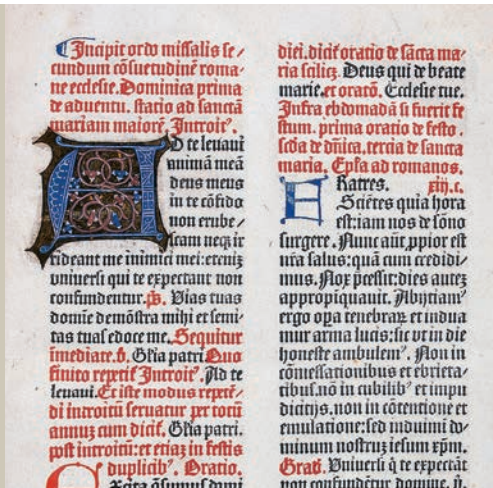 Incipit ordo missalis se⸗
cundum cōsuetudinē roma⸗
ne ecclesie. Dominica prima
de aduentu. statio ad sanctā
mariam maiorē. Introitꝰ.
AD te leuaui
animā meā
deus meus
in te cōfido
non erube⸗
scam neqꝫ ir
rideant me inimici mei: eteniꝫ
vniuersi qui te expectant non
confundentur. ℣. Vias tuas
domīe demōstra mihi et semi⸗
tas tuas edoce me. Sequitur
īmediate. Gl̄ia patri. Quo
finito repetiť Introitꝰ. Ad te
leuaui. Et iste modus repetē⸗
di introitū seruatur per totū
annuꝫ cum diciť. Gl̄ia patri.
post introitū: et etiaꝫ in festis
duplicibꝰ. Oratio.
diei. diciť oratio de sācta ma⸗
ria scilicꝫ. Deus qui de beate
marie. et oratō. Ecclesie tue.
Infra ebdomadā si fuerit fe
stum. prima oratio de festo.
scďa de dn̄ica, tercia de sancta
maria. Ep̄la ad romanos.
FRatres. xiij. c.
Sciētes quia hora
est: iam nos de sōno
surgere. Nunc aūt ꝓpior est
nr̄a salus: quā cum credidi⸗
mus. Nox p̄cessit: dies auteꝫ
appropiquauit. Abijciamꝰ
ergo opa tenebraꝝ et indua
mur arma lucis: sic vt in die
honeste ambulemꝰ. Non in
cōmessationibus et ebrieta⸗
tibus. nō in cubilibꝰ et impu
dicitijs. non in cōtentione et
emulatione: sed induimī do⸗
minum nostruꝫ iesum xp̄m.
Grad. Vniuersi q̄ te expectāt
non confundētur domine. ℣.